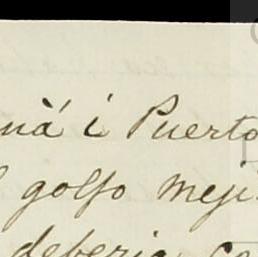 uá i Puerto
golfo meji
deberia co